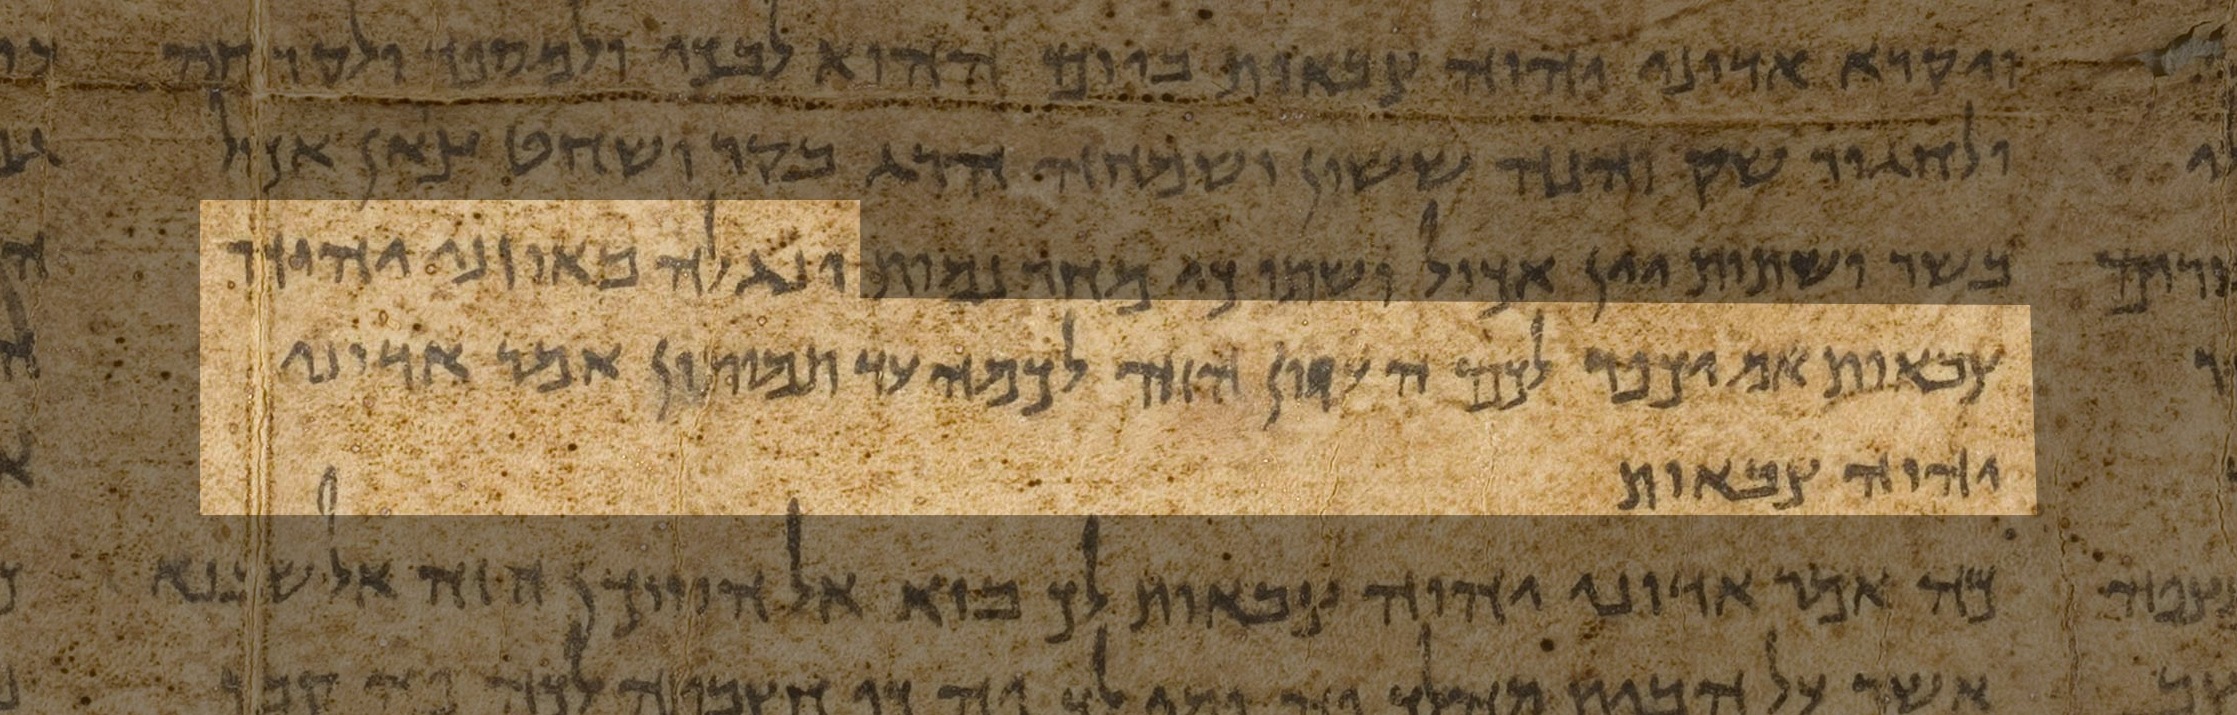 ויקרא אדוני יהוה צבאות ביום ההוא לבכי ולמספד ולקרחה
ולחגור שק והנה ששון ושמחה הרג בקר ושחט צאן אכול
בשר ושתות יין אכול ושתו כי מחר נמות ונגלה באוזני יהוה
צבאות אם יכפר לכם העוון הזה לכמה עד תמותון אמר אדוני
יהוה צבאות
כה אמר אדוני יהוה צבאות לך בוא אל הסוכן הזה אל שבנא
אשר על הבית